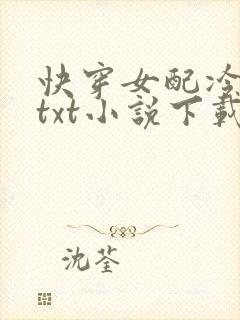 快穿女配冷
txt小說下載
沈荃